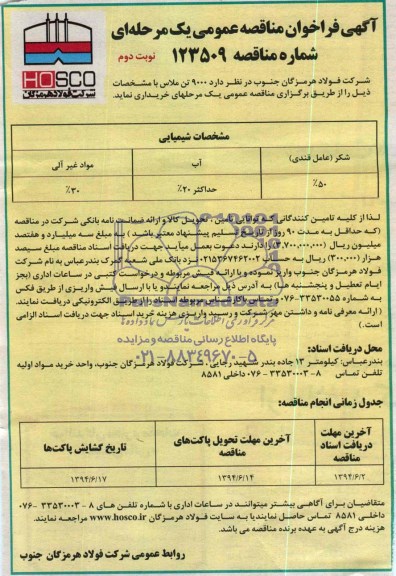 آگهی فراخوان مناقصه عمومی یک مرحله‌ای
شماره مناقصه ۱۲۳۵۰۹
نوبت دوم
HOSCO
شرکت فولاد هرمزگان
شرکت فولاد هرمزگان جنوب در نظر دارد ۹۰۰۰ تن ملاس با مشخصات
ذیل را از طریق برگزاری مناقصه عمومی یک مرحله‌ای خریداری نماید.
مشخصات شیمیایی
شکر (عامل قندی) آب مواد غیر آلی
۵۰٪ حداکثر ۲۰٪ ۳۰٪
لذا از کلیه تامین کنندگانی که توانایی تامین ، تحویل کالا و ارائه ضمانت نامه بانکی شرکت در مناقصه
(که حداقل به مدت ۹۰ روز از تاریخ تسلیم پیشنهاد معتبر باشید ) به مبلغ سه میلیارد و هفتصد
میلیون ریال (۳,۷۰۰,۰۰۰,۰۰۰) را دارند دعوت بعمل میآید جهت دریافت اسناد مناقصه مبلغ سیصد
هزار (۳۰۰,۰۰۰) ریال به حساب ۰۲۱۵۳۶۷۴۶۲۰۰۲ نزد بانک ملی شعبه گمرک بندرعباس به نام شرکت
فولاد هرمزگان جنوب واریز نموده و با ارائه فیش مربوطه و درخواست کتبی در ساعات اداری (بجز
ایام تعطیل و پنجشنبه ها) به آدرس ذیل مراجعه نمایند و یا با ارسال فیش واریزی از طریق فکس
به شماره ۳۳۵۳۰۰۵۵-۰۷۶ اسناد را از طریق پست الکترونیکی دریافت نمایند.
( ارائه معرفی نامه و داشتن مهر شرکت و رسید واریزی هزینه خرید اسناد جهت دریافت اسناد الزامی
است.)
پایگاه اطلاع رسانی مناقصه و مزایده
۰۲۱-۸۸۳۴۹۶۷۰-۵
محل دریافت اسناد:
بندرعباس: کیلومتر ۱۳ جاده بندر شهید رجایی ، شرکت فولاد هرمزگان جنوب، واحد خرید مواد اولیه
تلفن تماس ۸ - ۳۳۵۳۰۰۰۳ - ۰۷۶ داخلی ۸۵۸۱
جدول زمانی انجام مناقصه:
آخرین مهلت دریافت اسناد مناقصه آخرین مهلت تحویل پاکت‌های مناقصه تاریخ گشایش پاکت‌ها
۱۳۹۴/۶/۲ ۱۳۹۴/۶/۱۴ ۱۳۹۴/۶/۱۷
متقاضیان برای آگاهی بیشتر میتوانند در ساعات اداری با شماره تلفن های ۸ - ۳۳۵۳۰۰۰۳ -۰۷۶
داخلی ۸۵۸۱ تماس حاصل نمایند یا به سایت فولاد هرمزگان www.hosco.ir مراجعه نمایند.
هزینه درج آگهی به عهده برنده مناقصه می باشد.
روابط عمومی شرکت فولاد هرمزگان جنوب